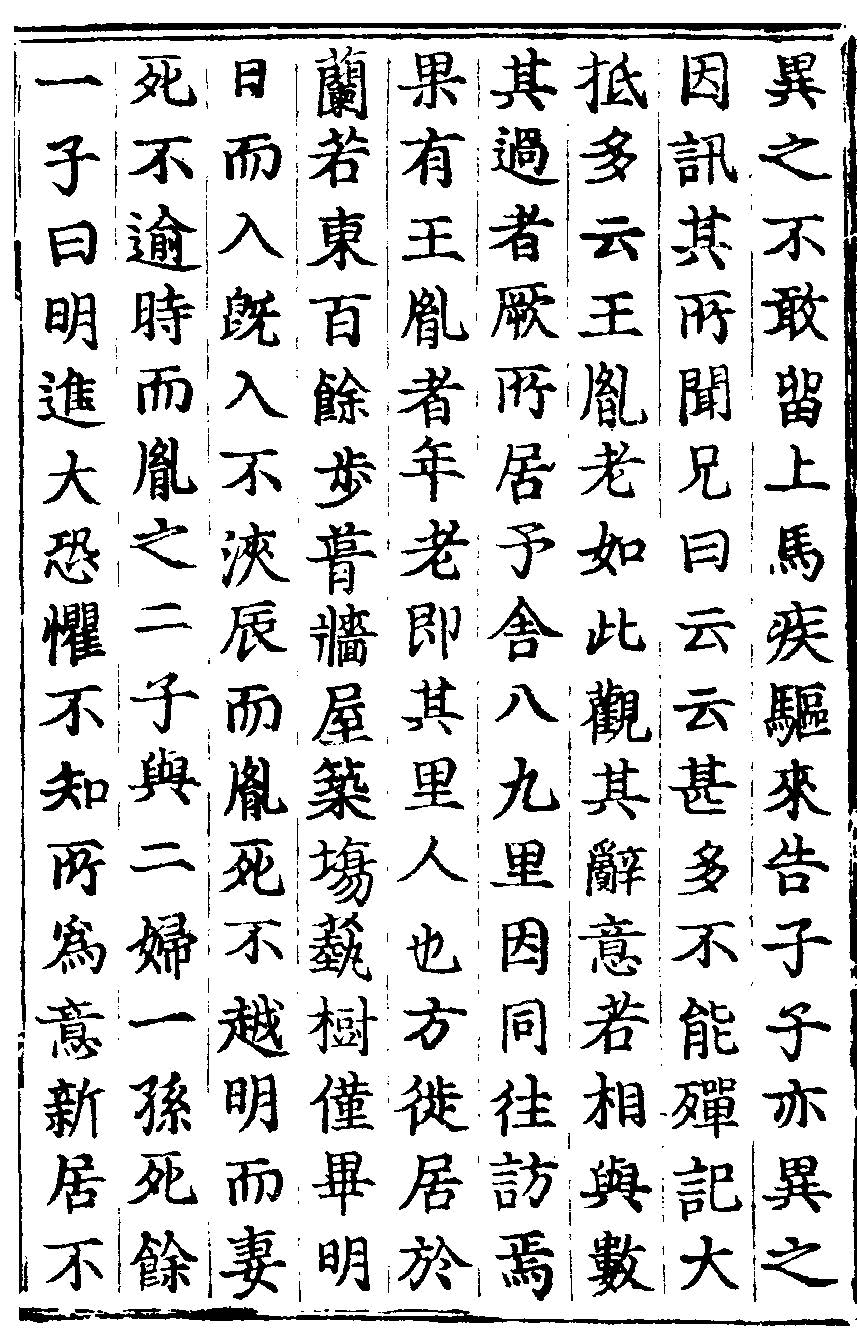 異之不敢留上馬疾驅來告予予亦異之
因訊其所聞兄曰云云甚多不能殫記大
抵多云王胤老如此觀其辭意若相與數
其過者厥所居予舍八九里因同往訪焉
果有王胤者年老即其里人也方徙居於
蘭若東百餘步葺牆屋築塲藝樹僅畢明
日而入既入不浹辰而胤死不越明而妻
死不逾時而胤之二子與二婦一孫死餘
一子曰明進大恐懼不知所為意新居不